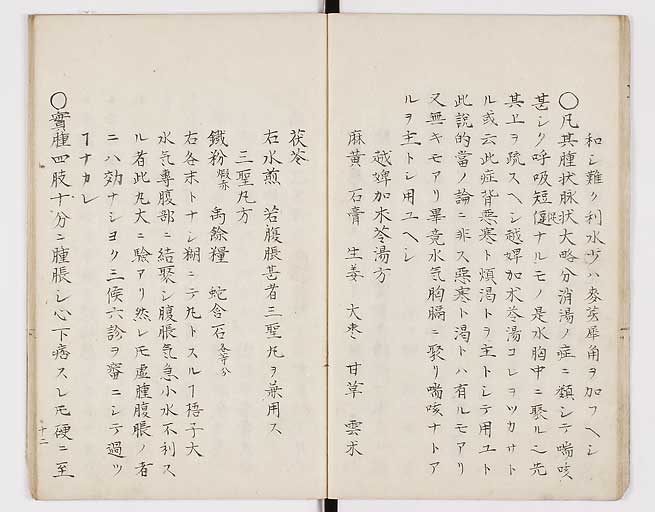 和シ難ク利水少ハ麥芽犀角ヲ加フヘシ
○凡其腫状脉状大略分消湯ノ症ニ類シテ喘咳
甚シク呼吸短促ナルモノ是水胸中ニ聚ル也先
其上ヲ疏スヘシ越婢加朮苓湯コレヲツカサト
ル或云此症背悪寒ト煩渇トヲ主トシテ用ユト
此説的當ノ論ニ非ス悪寒ト渇トハ有ルモアリ
又無キモアリ畢竟水気胸膈ニ聚リ喘咳ナトア
ルヲ主トシ用ユヘシ
越婢加朮苓湯方
麻黄 石膏 生姜 大枣 甘草 雲朮
茯苓
右水煎 若腹脹甚者三聖丸ヲ兼用ス
三聖丸方
鐵粉煅赤 禹餘糧 蛇含石各等分
右各末トナシ糊ニテ丸トスルヿ梧子大
水気專腹部ニ結聚シ腹脹気急小水不利ス
ル者此丸大ニ驗アリ然レ𪜈虚腫腹脹ノ者
ニハ効ナシヨク三候六診ヲ審ニシテ過ツ
ヿナカレ
○實腫四肢十分ニ腫脹シ心下痞スレ𪜈硬ニ至
十二